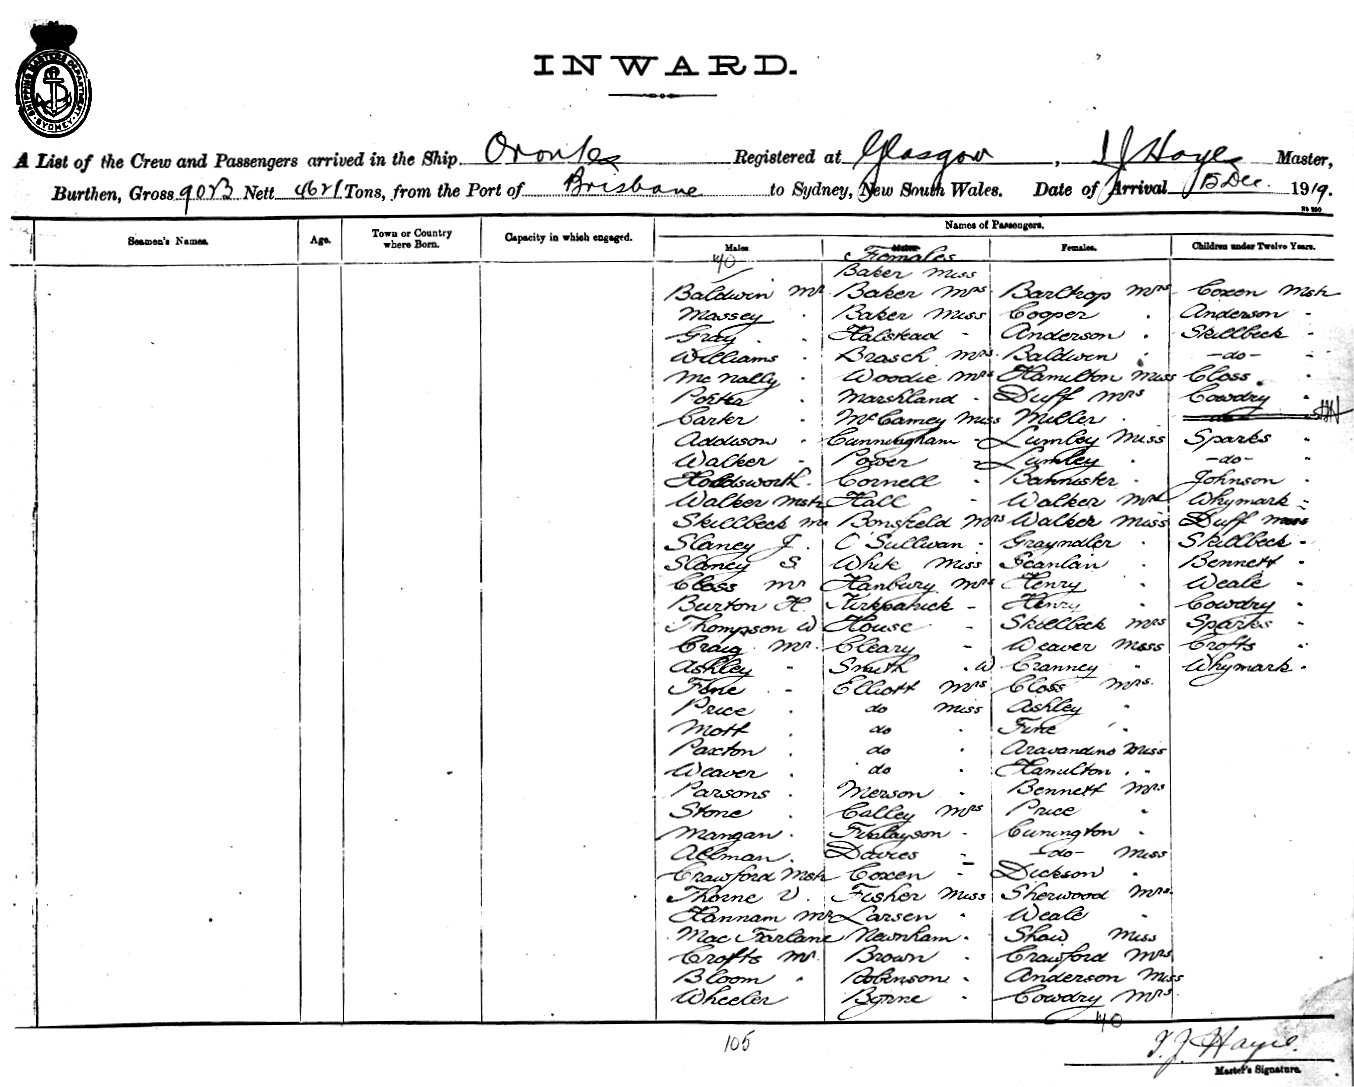 SHIPPING MASTERS DEPARTMENT SYDNEY
INWARD.
A List of the Crew and Passengers arrived in the Ship Orontes Registered at Glasgow, J J Hayes Master,
Burthen, Gross 9023 Nett 4621 Tons, from the Port of Brisbane to Sydney, New South Wales. Date of Arrival 15 Dec. 1919.
Names of Passengers.
Seamen's Names. Age. Town or Country where Born. Capacity in which engaged. Males Females Females. Children under Twelve Years.
40
Baker Miss
Baldwin Mr Baker Mrs Bartrop Mrs Coxen Mstr
Massey " Baker Miss Cooper " Anderson "
Gray " Halstead " Anderson " Skillbeck "
Williams " Brasch Mrs Baldwin " -do- "
McNally " Woodie Mrs Hamilton Miss Closs "
Porter " Marshland " Duff Mrs Cowdry "
Carter " McCamey Miss Miller "
Addison " Cunningham " Lumley Miss Sparks "
Walker " Power " Lumley " -do- "
Holdsworth " Cornell " Bannister " Johnson "
Walker Mstr Hall " Walker Mrs Whymark "
Skillbeck Mr Bonsfield Mrs Walker Miss Duff Miss
Slaney J. O'Sullivan " Grayndler " Skillbeck "
Slaney S White Miss Scanlan " Bennett "
Closs Mr Hanbury Mrs Henry " Weale "
Burton H. Kirkpatrick " Henry " Cowdry "
Thompson W House " Skillbeck Mrs Sparks "
Craig Mr. Cleary " Weaver Miss Crofts "
Ashley " Smith W Cranney " Whymark "
Fine " Elliott Mrs Closs Mrs.
Price " do Miss Ashley "
Mott " do " Fine "
Paxton " do " Aravandino Miss
Weaver " do " Hamilton "
Parsons " Merson " Bennett Mrs
Stone " Calley Mrs Price "
Mangan " Finlayson " Cunington "
Allman " Davies " -do- Miss
Crawford Mstr Coxen " Dickson "
Thorne V. Fisher Miss Sherwood Mrs.
Hannam Mr Larsen " Weale "
MacFarlane Newnham " Shaw Miss
Crofts Mr. Brown " Crawford Mrs
Bloom " Robinson " Anderson Miss
Wheeler Byrne " Cowdry Mrs.
40
105
J.J. Hayes.
Master's Signature.